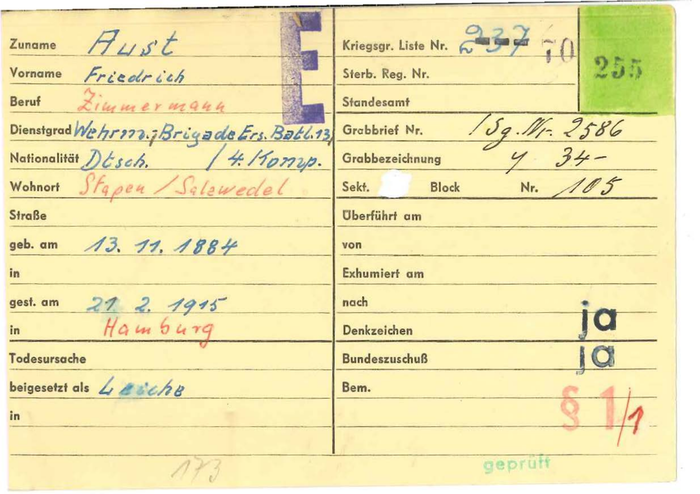 Zuname Aust
Vorname Friedrich
Beruf Zimmermann
Dienstgrad Wehrm.; Brigade Ers. Batl. 13,
Nationalität Dtsch. / 4. Komp.
Wohnort Stapen / Salzwedel
Straße
geb. am 13. 11. 1884
in
gest. am 21. 2. 1915
in Hamburg
Todesursache
beigesetzt als Leiche
in
173
E
Kriegsgr. Liste Nr. 237 70
255
Sterb. Reg. Nr.
Standesamt
Grabbrief Nr. / Sg. Nr. 2586
Grabbezeichnung y 34-
Sekt. Block Nr. 105
Überführt am
von
Exhumiert am
nach
Denkzeichen ja
Bundeszuschuß ja
Bem.
§ 1/1
geprüft